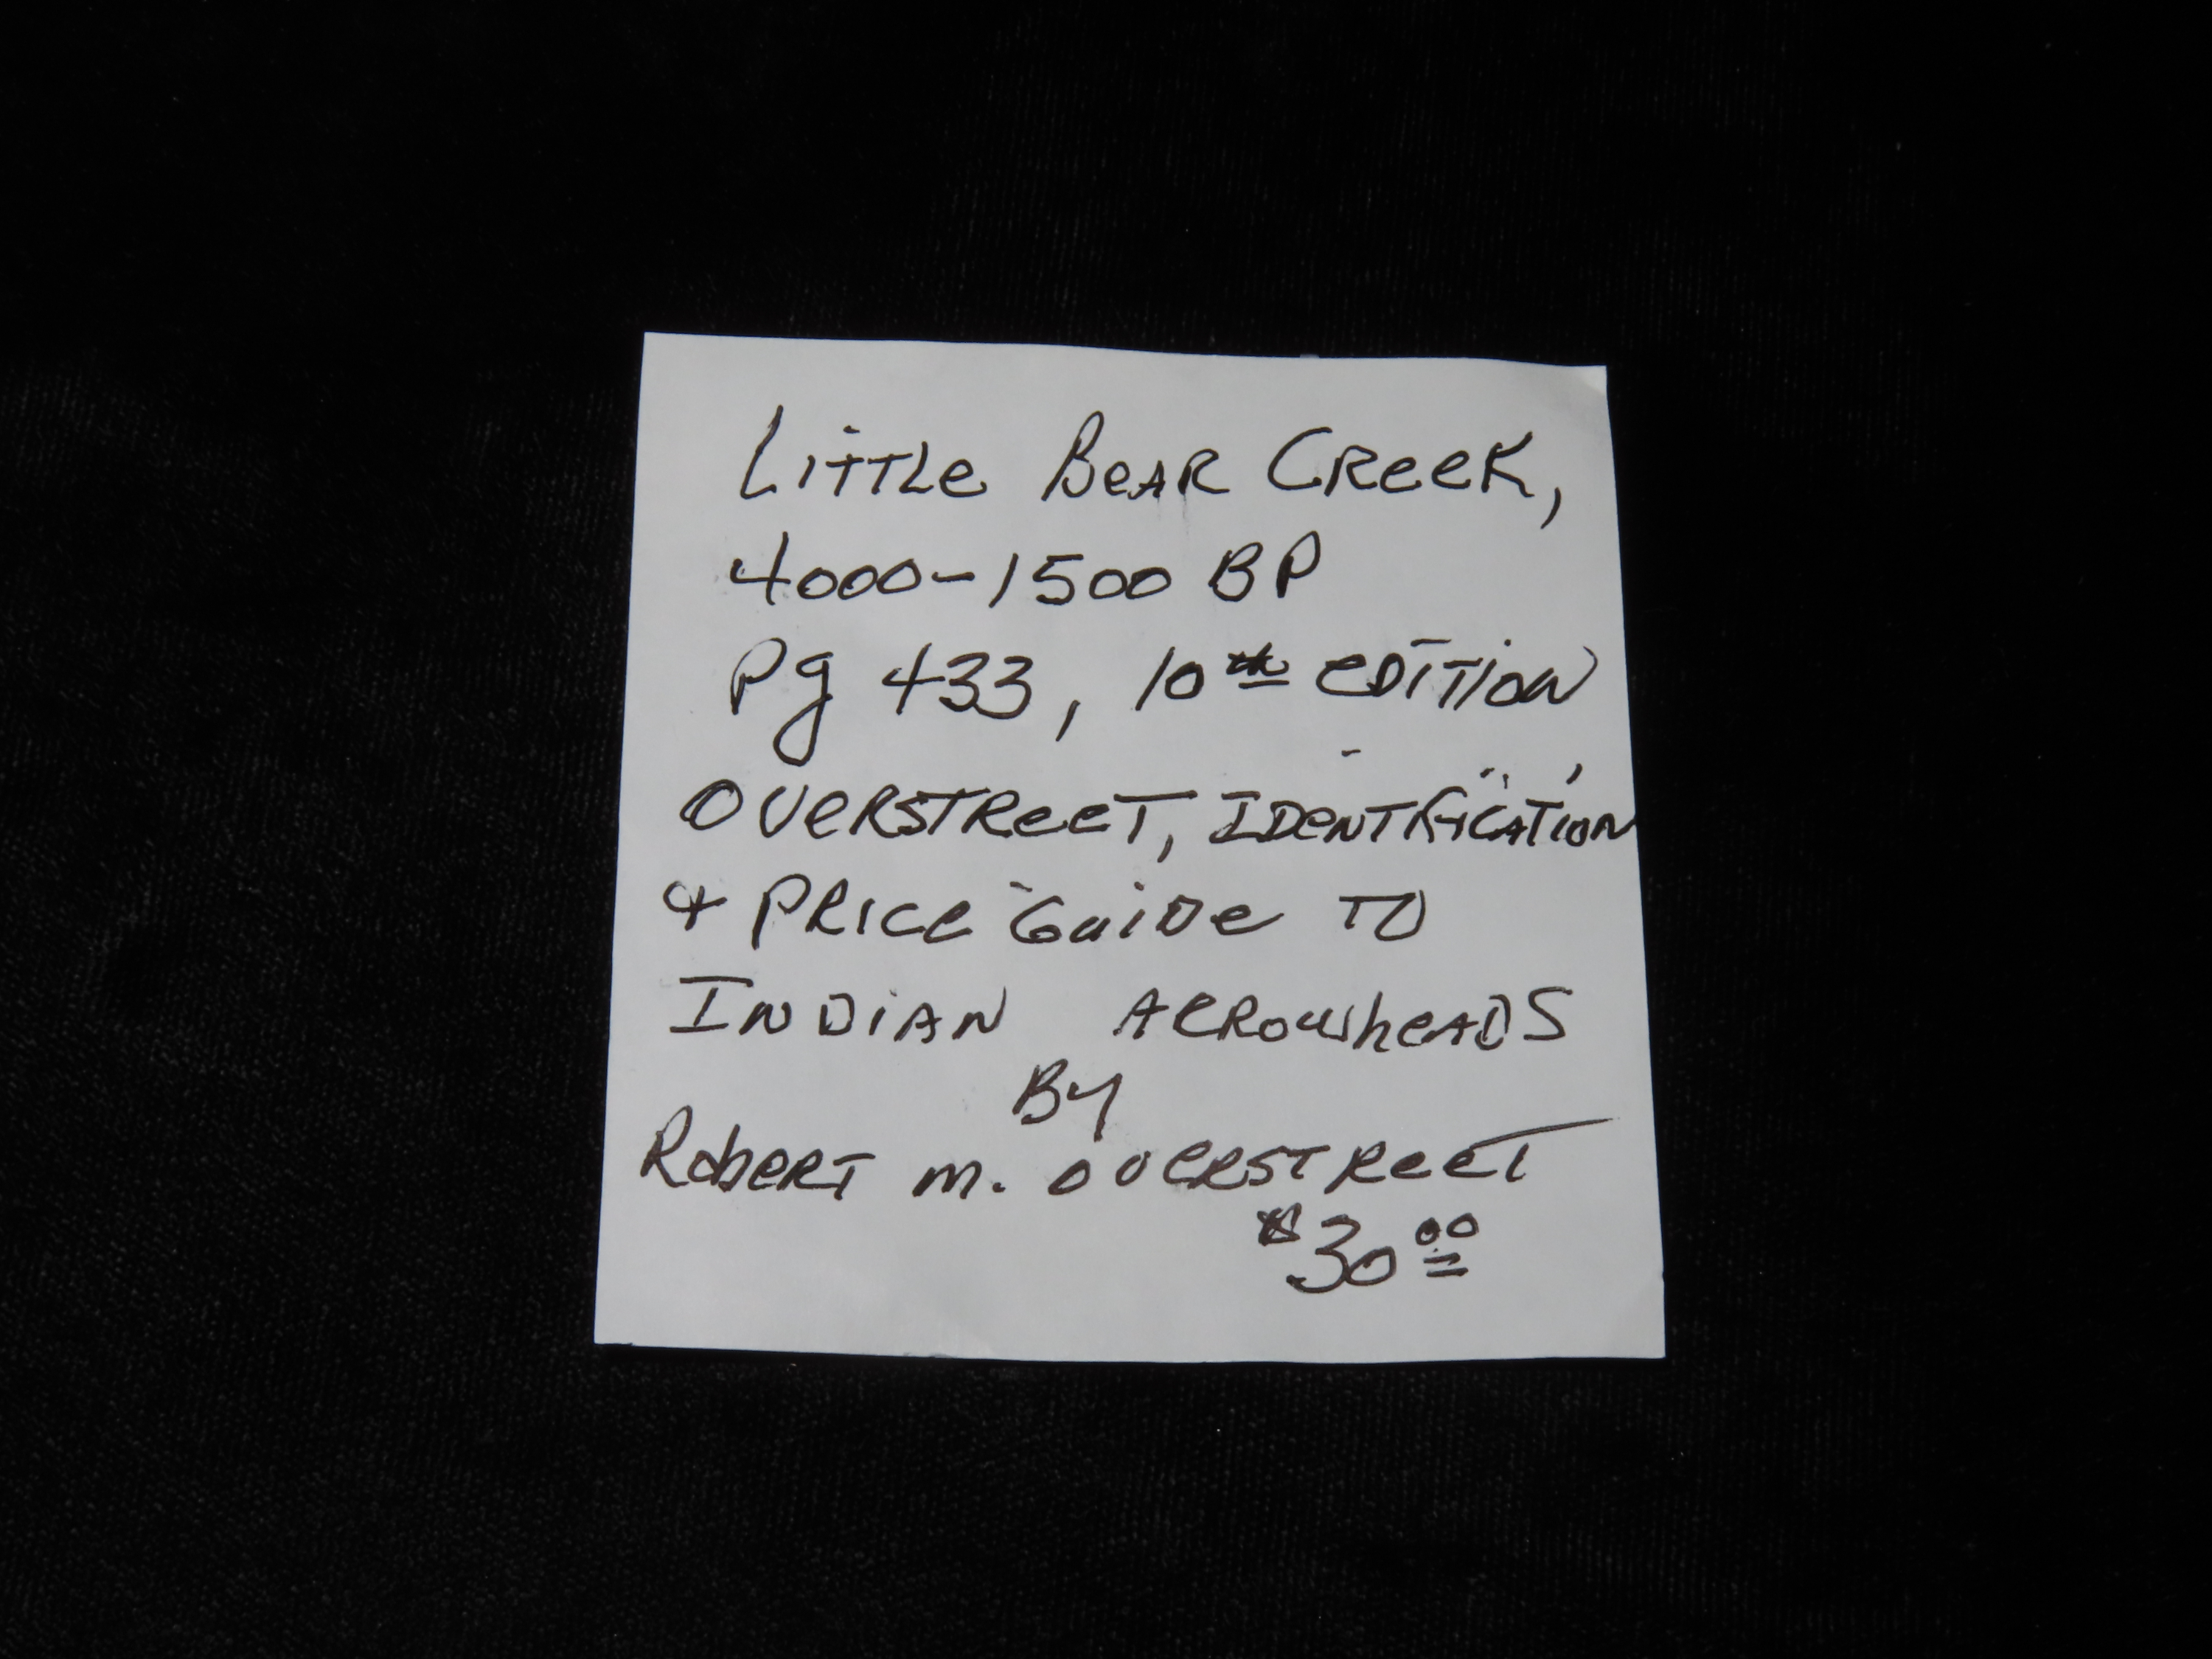 Little Bear Creek,
4000-1500 BP
Pg 433, 10th Edition
Overstreet, Identification
& Price Guide to
Indian Arrowheads
By
Robert M. Overstreet
$30.00